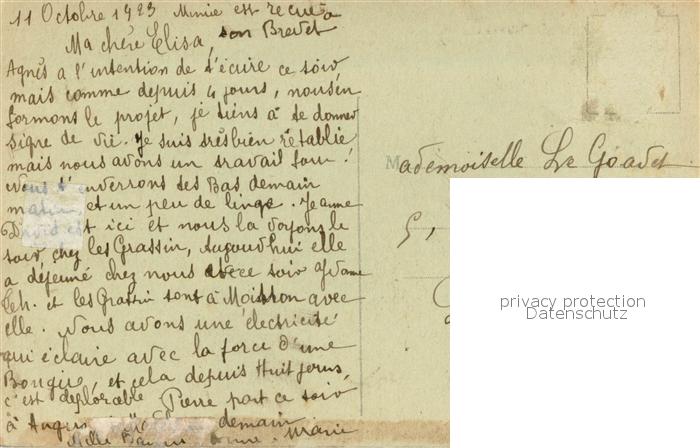 11 Octobre 1923 Mimie est recue a
son Brevet
Ma chère Elisa,
Agnès a l'intention de t'écrire ce soir,
mais comme depuis 4 jours, nous en
formons le projet, je tiens à te donner
signe de vie. Je suis très bien rétablie
mais nous avons un travail fou!
Nous t'enverrons tes Bas demain
matin, et un peu de linge. Jeanne
est ici et nous la voyons le
soir, chez les Grassin, Aujourd'hui elle
a déjeuné chez nous avec ce soir
et les Grassin sont à Moisson avec
elle. Nous avons une électricité
qui éclaire avec la force d'une
Bougie, et cela depuis Huit jours,
c'est déplorable Pierre part ce soir
à demain
Marie
Mademoiselle Le Goadet
5,
privacy protection
Datenschutz